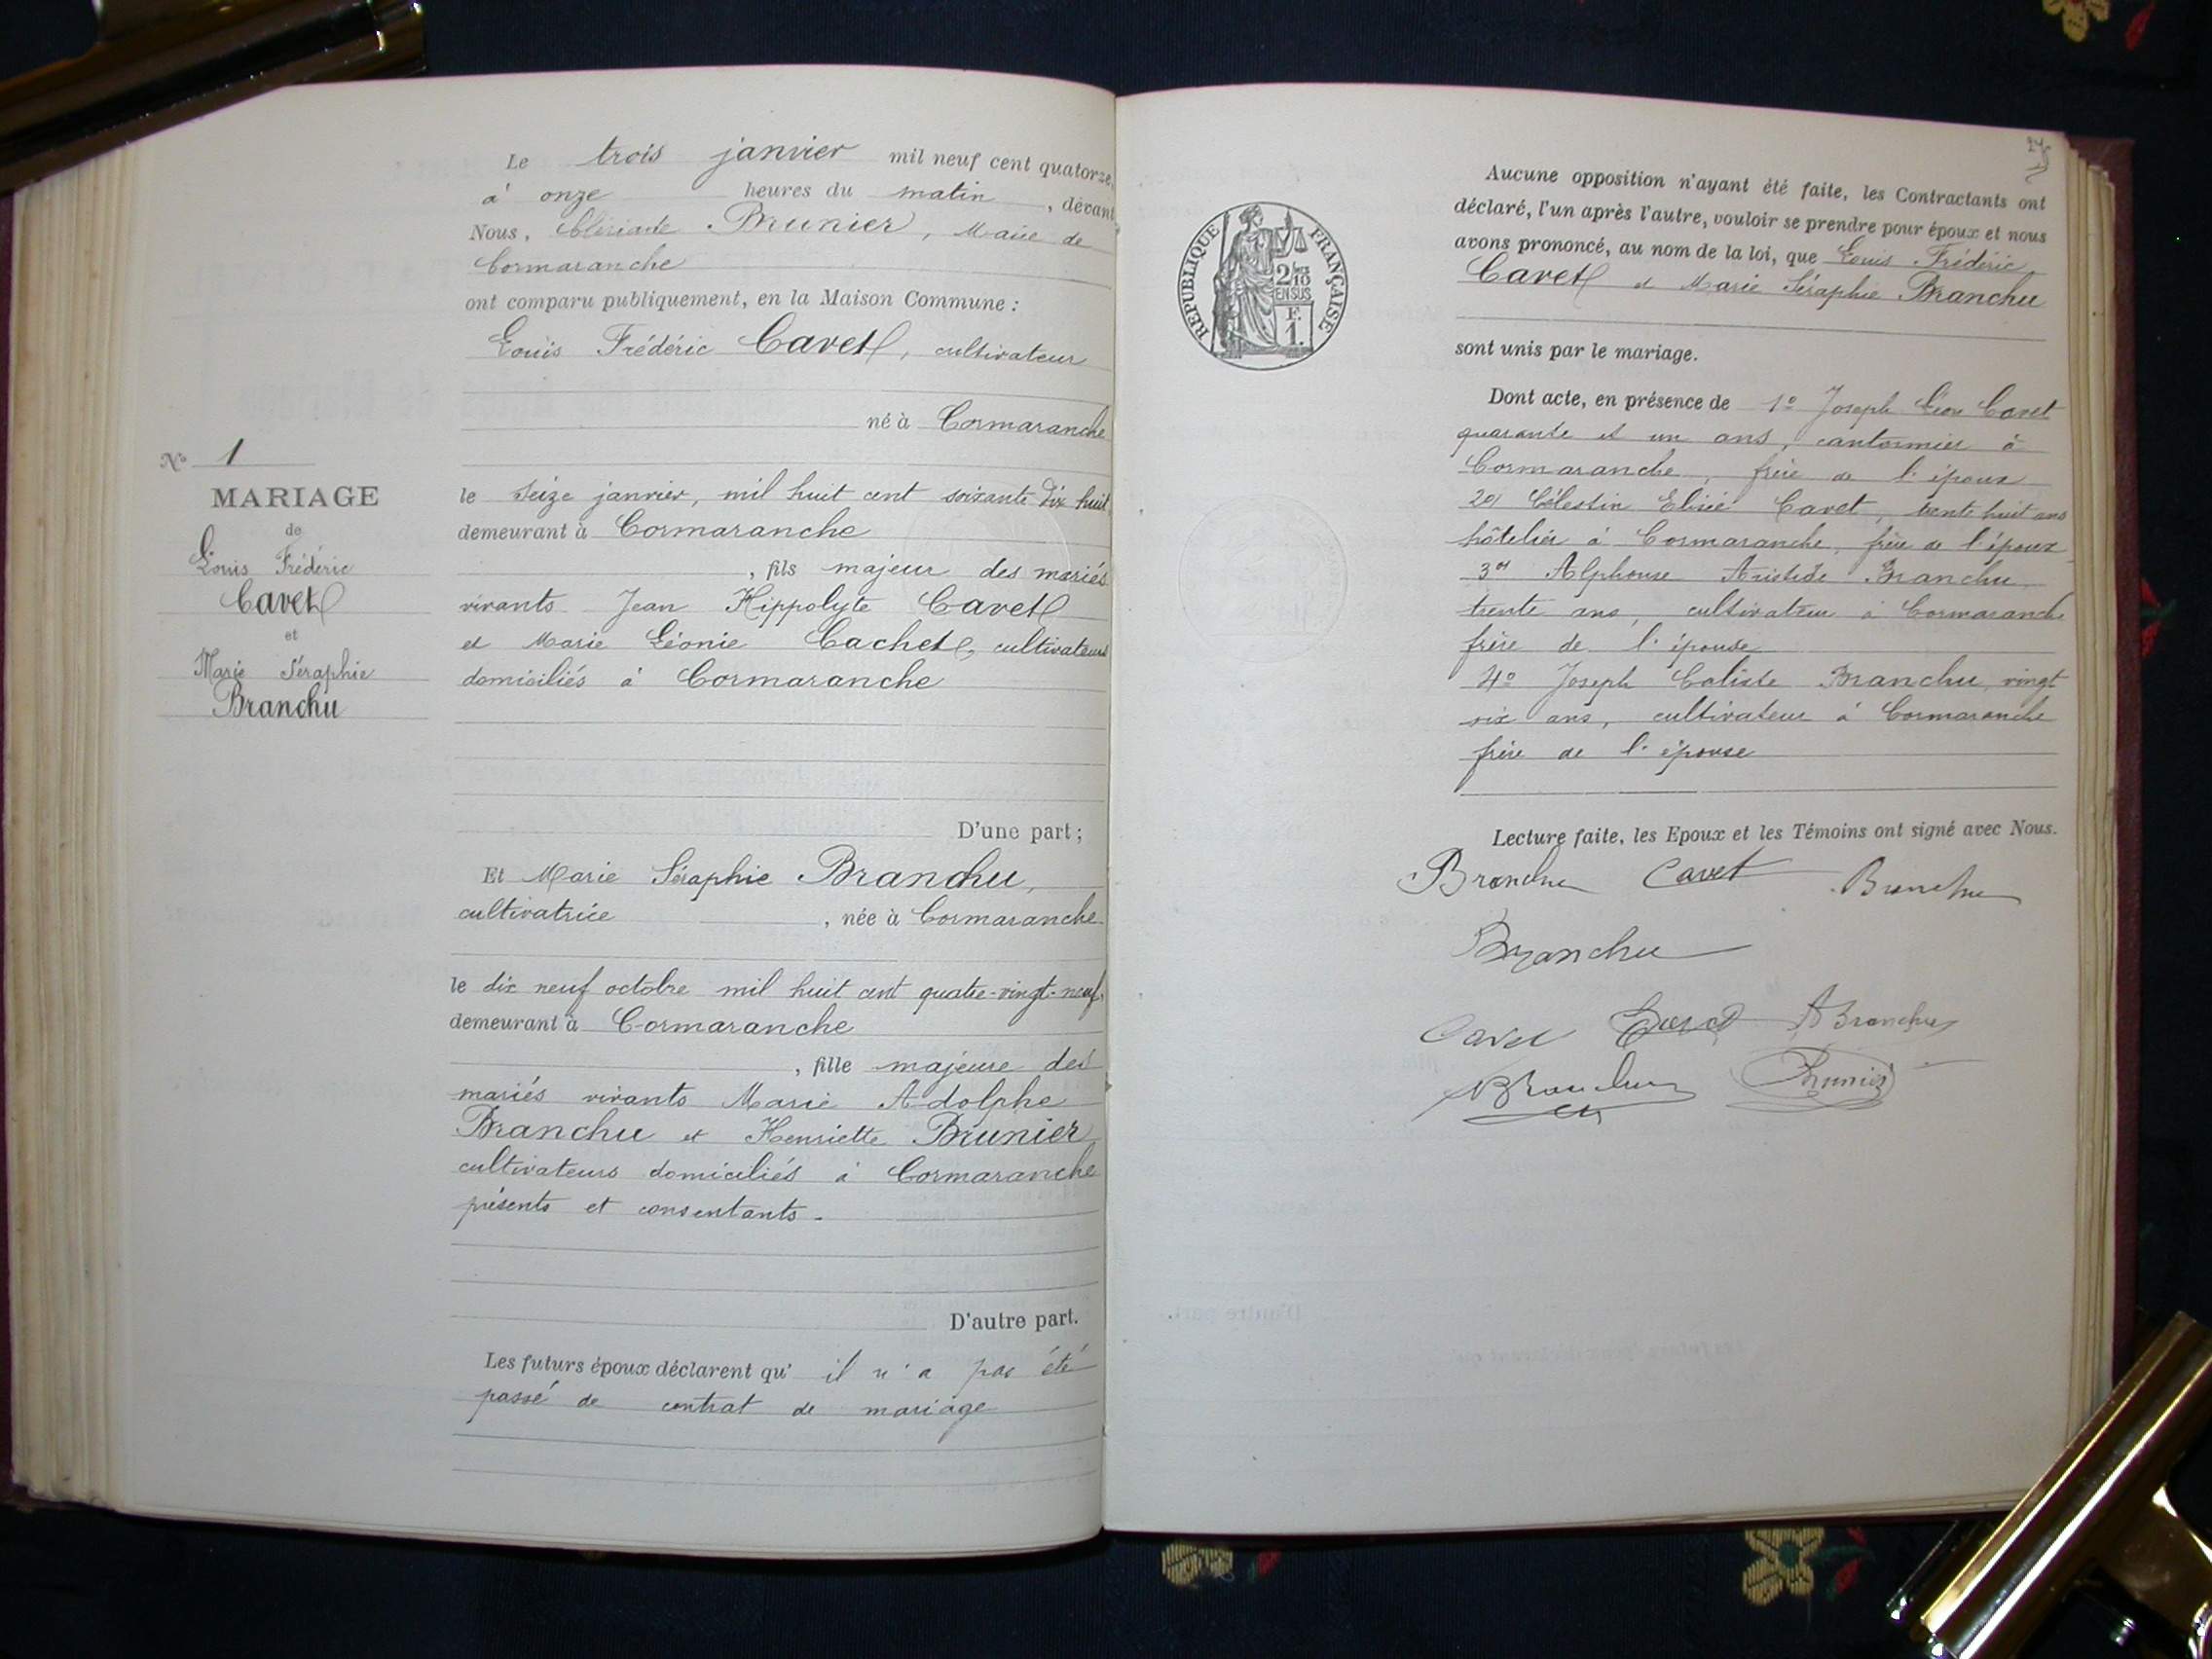 Le trois janvier mil neuf cent quatorze,
à onze heures du matin, devant
Nous, Brunier, Maire de
Cormaranche
ont comparu publiquement, en la Maison Commune :
Louis Frédéric Cavet, cultivateur
né à Cormaranche
No 1
MARIAGE
de
Louis Frédéric
Cavet
et
Marie Séraphie
Branchu
le seize janvier, mil huit cent soixante dix huit
demeurant à Cormaranche
, fils majeur des mariés
vivants Jean Hippolyte Cavet
et Marie Léonie Cachet, cultivateurs
domiciliés à Cormaranche
D'une part ;
Et Marie Séraphie Branchu,
cultivatrice, née à Cormaranche
le dix neuf octobre mil huit cent quatre-vingt-neuf,
demeurant à Cormaranche
, fille majeure des
mariés vivants Marie Adolphe
Branchu et Henriette Brunier
cultivateurs domiciliés à Cormaranche
présents et consentants.
D'autre part.
Les futurs époux déclarent qu'il n'a pas été
passé de contrat de mariage
RÉPUBLIQUE FRANÇAISE
2/10
EN SUS
F.
1.
Aucune opposition n'ayant été faite, les Contractants ont
déclaré, l'un après l'autre, vouloir se prendre pour époux et nous
avons prononcé, au nom de la loi, que Louis Frédéric
Cavet et Marie Séraphie Branchu
sont unis par le mariage.
Dont acte, en présence de 1o Joseph Léon Cavet
quarante et un ans, cantonnier à
Cormaranche, frère de l'époux
2o Célestin Elisée Cavet, trente huit ans
hôtelier à Cormaranche, frère de l'époux
3o Alphonse Aristide Branchu
trente ans, cultivateur à Cormaranche
frère de l'épouse
4o Joseph Caliste Branchu, vingt
six ans, cultivateur à Cormaranche
frère de l'épouse
Lecture faite, les Epoux et les Témoins ont signé avec Nous.
Branchu Cavet Branchu
Branchu
Cavet Cavet A Branchu
Branchu Brunier